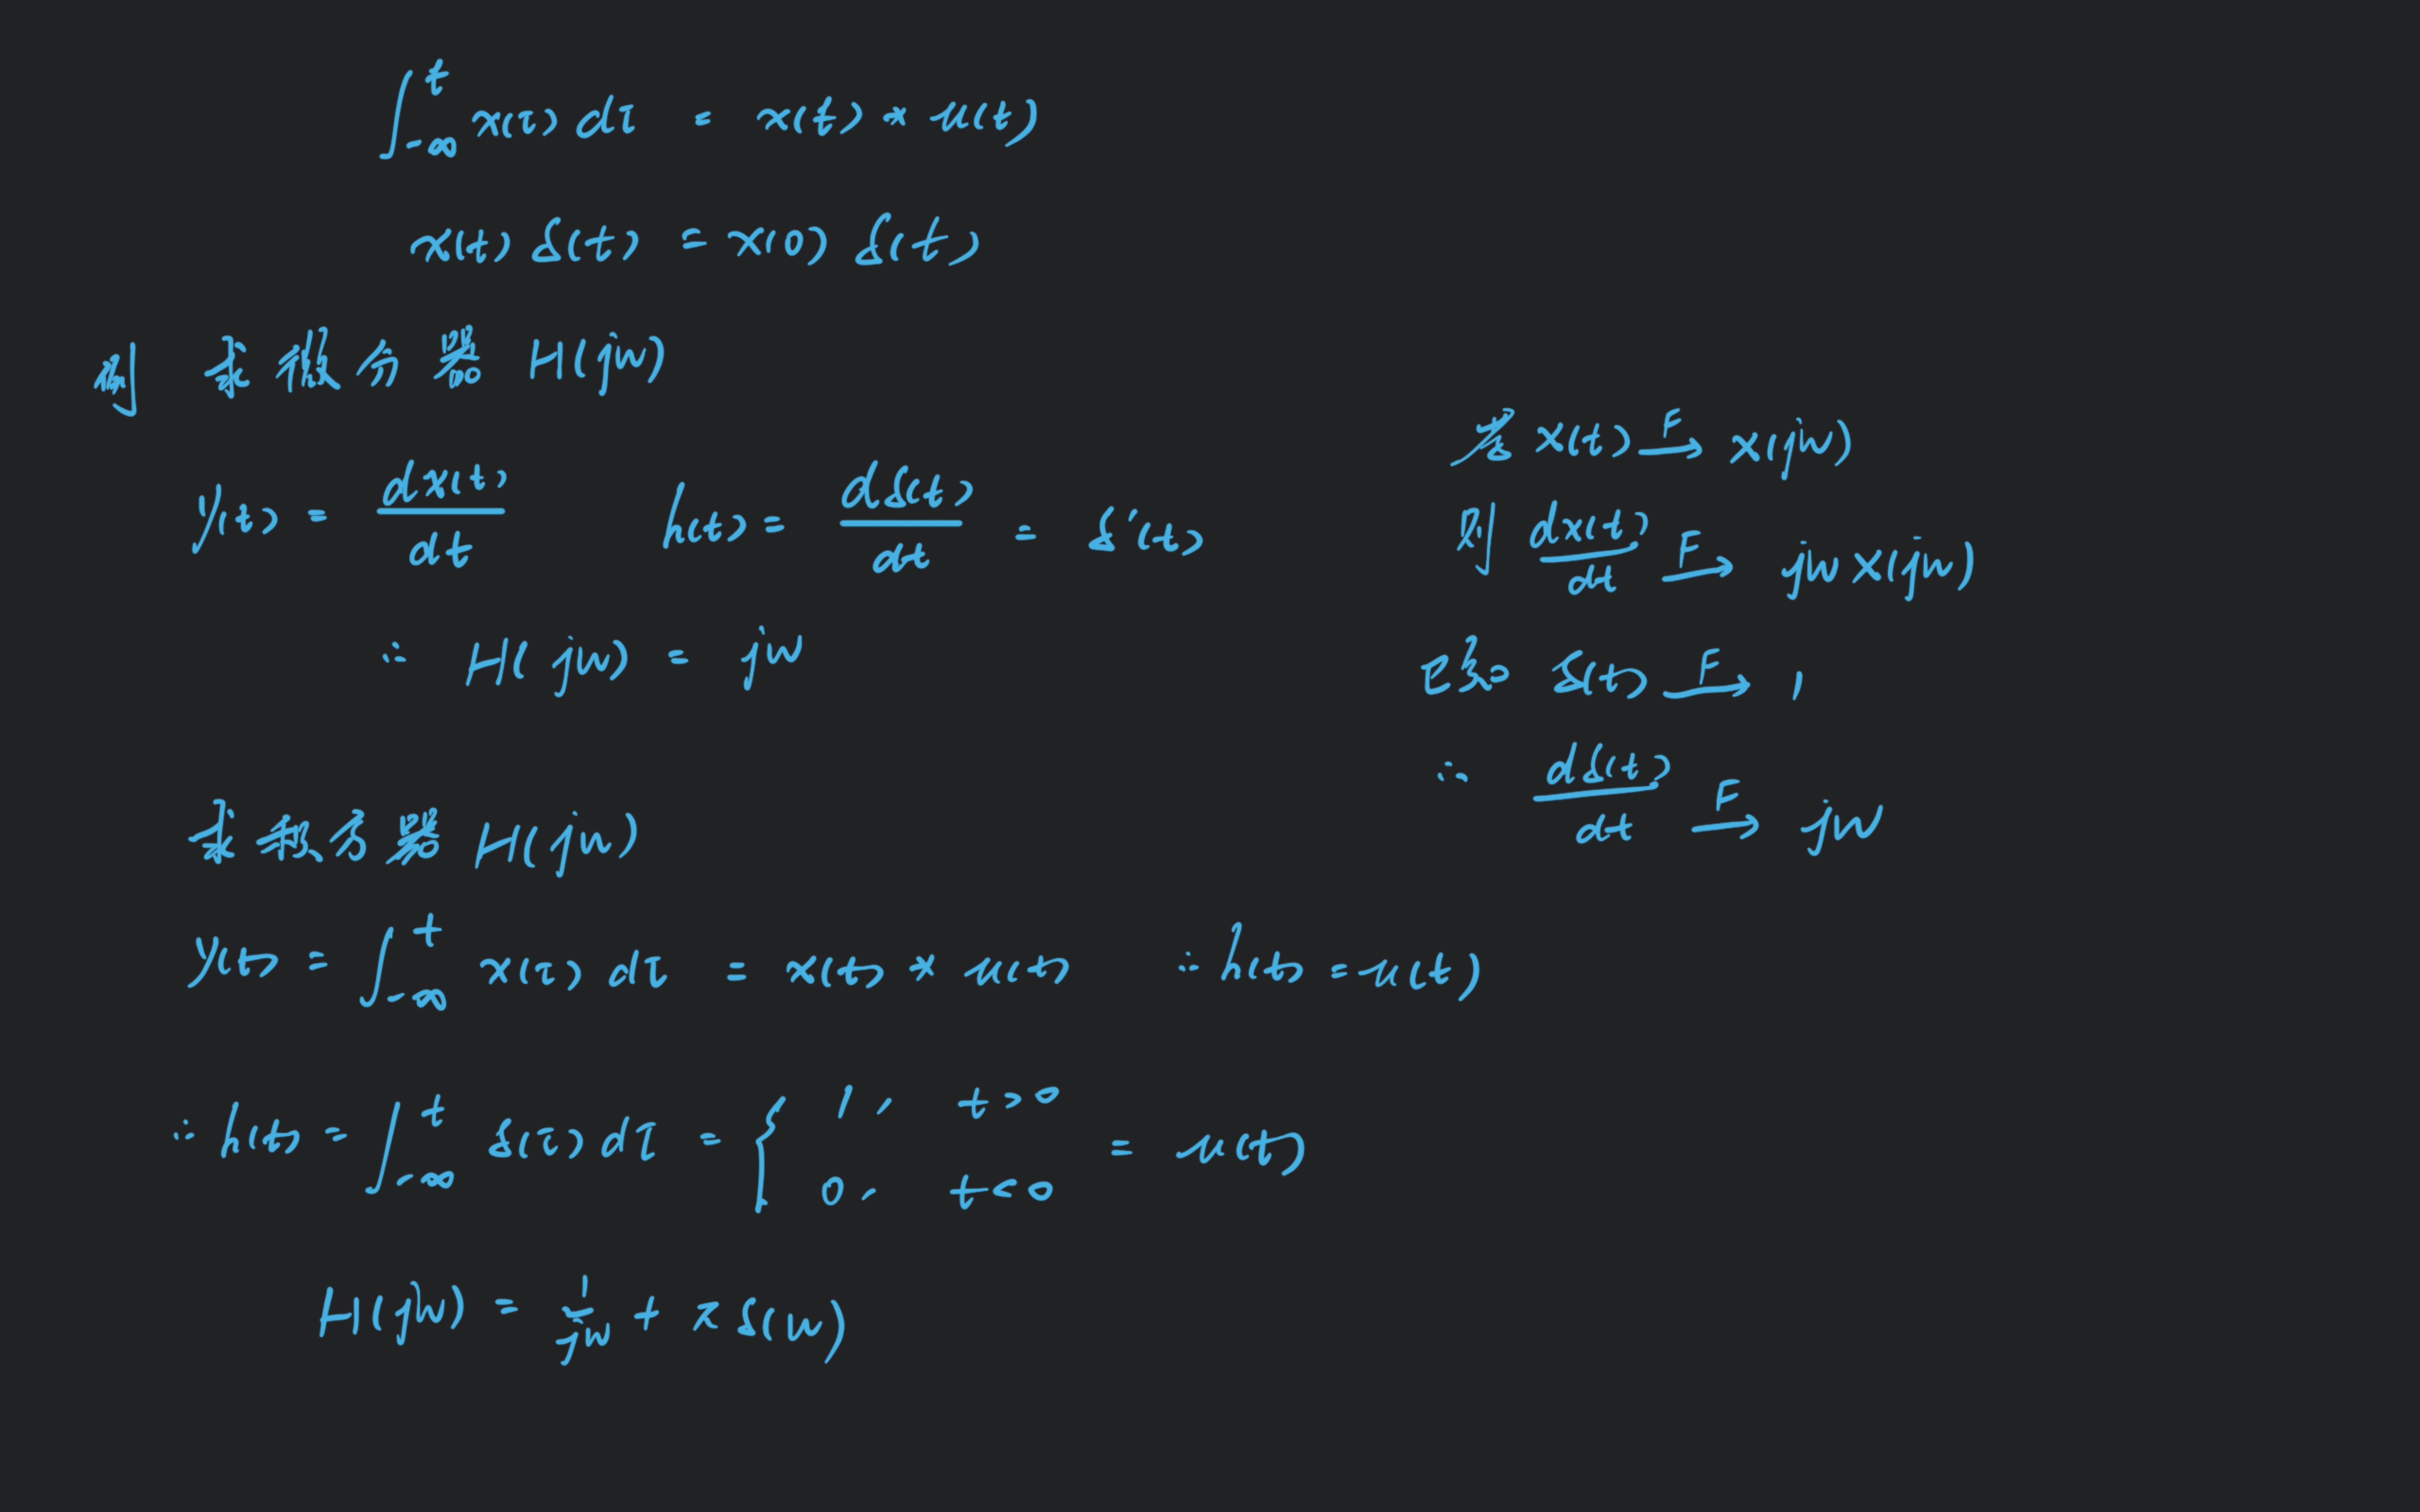 ∫_{-∞}^{t} x(τ) dτ = x(t) * u(t)
x(t) δ(t) = x(0) δ(t)
例 求微分器 H(jw)
y(t) = dx(t)/dt    h(t) = dδ(t)/dt = δ'(t)
∴ H(jw) = jw
若 x(t) —F→ X(jw)
则 dx(t)/dt —F→ jw X(jw)
已知 δ(t) —F→ 1
∴ dδ(t)/dt —F→ jw
求积分器 H(jw)
y(t) = ∫_{-∞}^{t} x(τ) dτ = x(t) * u(t)    ∴ h(t) = u(t)
∴ h(t) = ∫_{-∞}^{t} δ(τ) dτ = { 1, t>0
0, t<0 = u(t)
H(jw) = 1/jw + π δ(w)